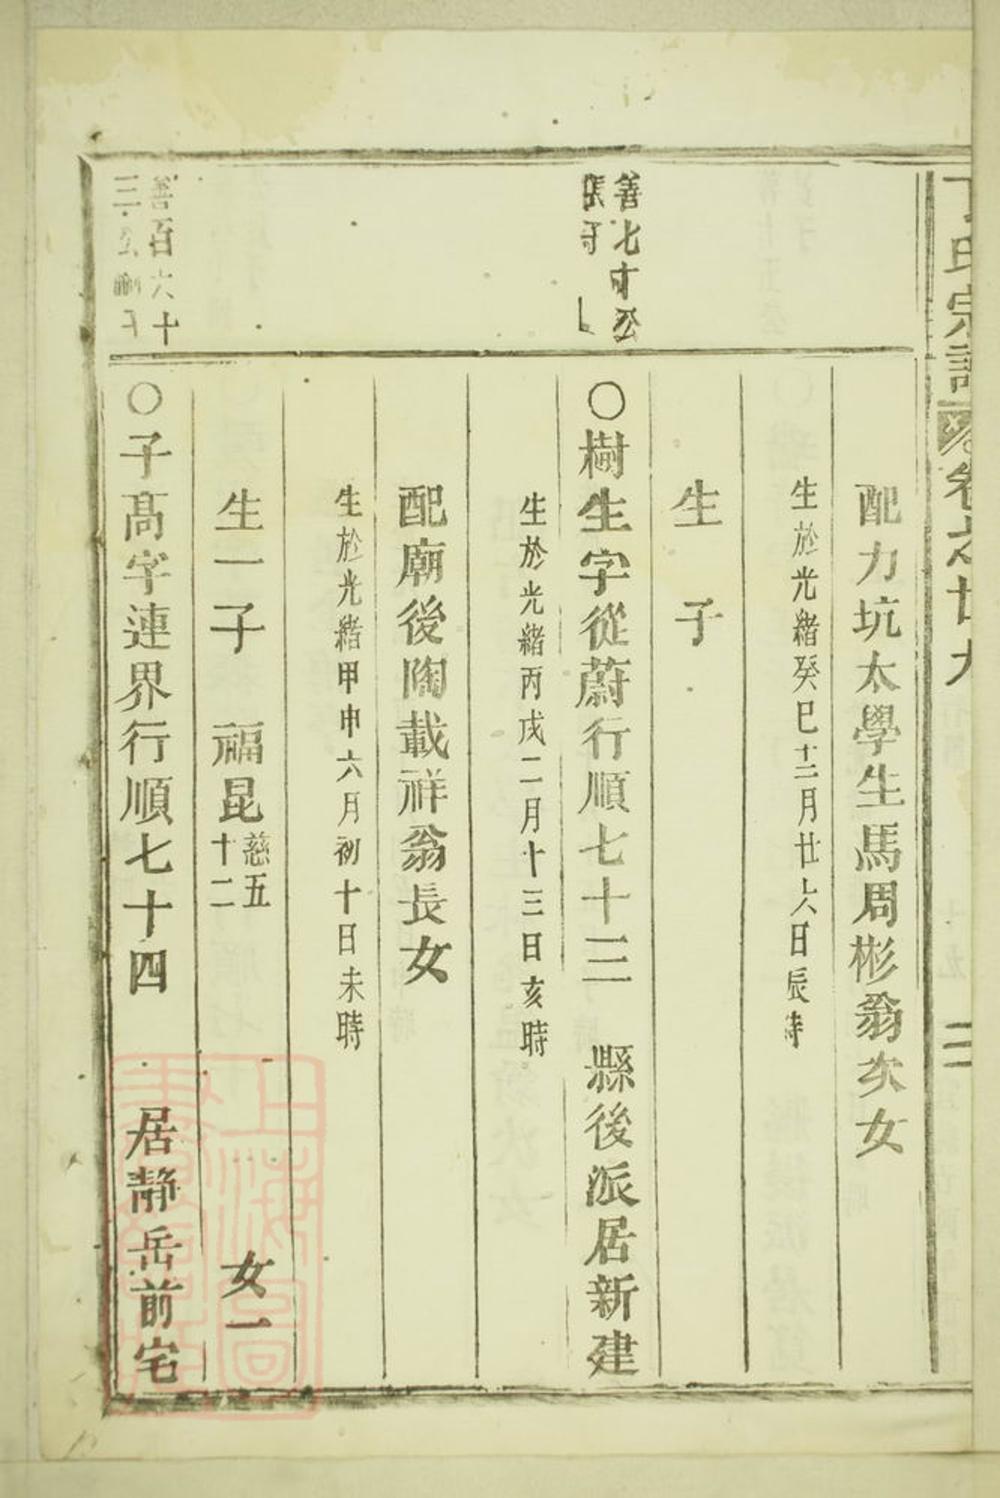 丁氏宗譜 卷之廿九 二
配力坑太學生馬周彬翁次女
生於光緒癸巳十二月廿六日辰時
生 子
善七十公
○樹生字從蔚行順七十三 縣後派居新建
生於光緒丙戌二月十三日亥時
配廟後陶載祥翁長女
生於光緒甲申六月初十日未時
生一子 福昆慈五十二 女一
善百六十
三公
○子髙字連界行順七十四 居静岳前宅